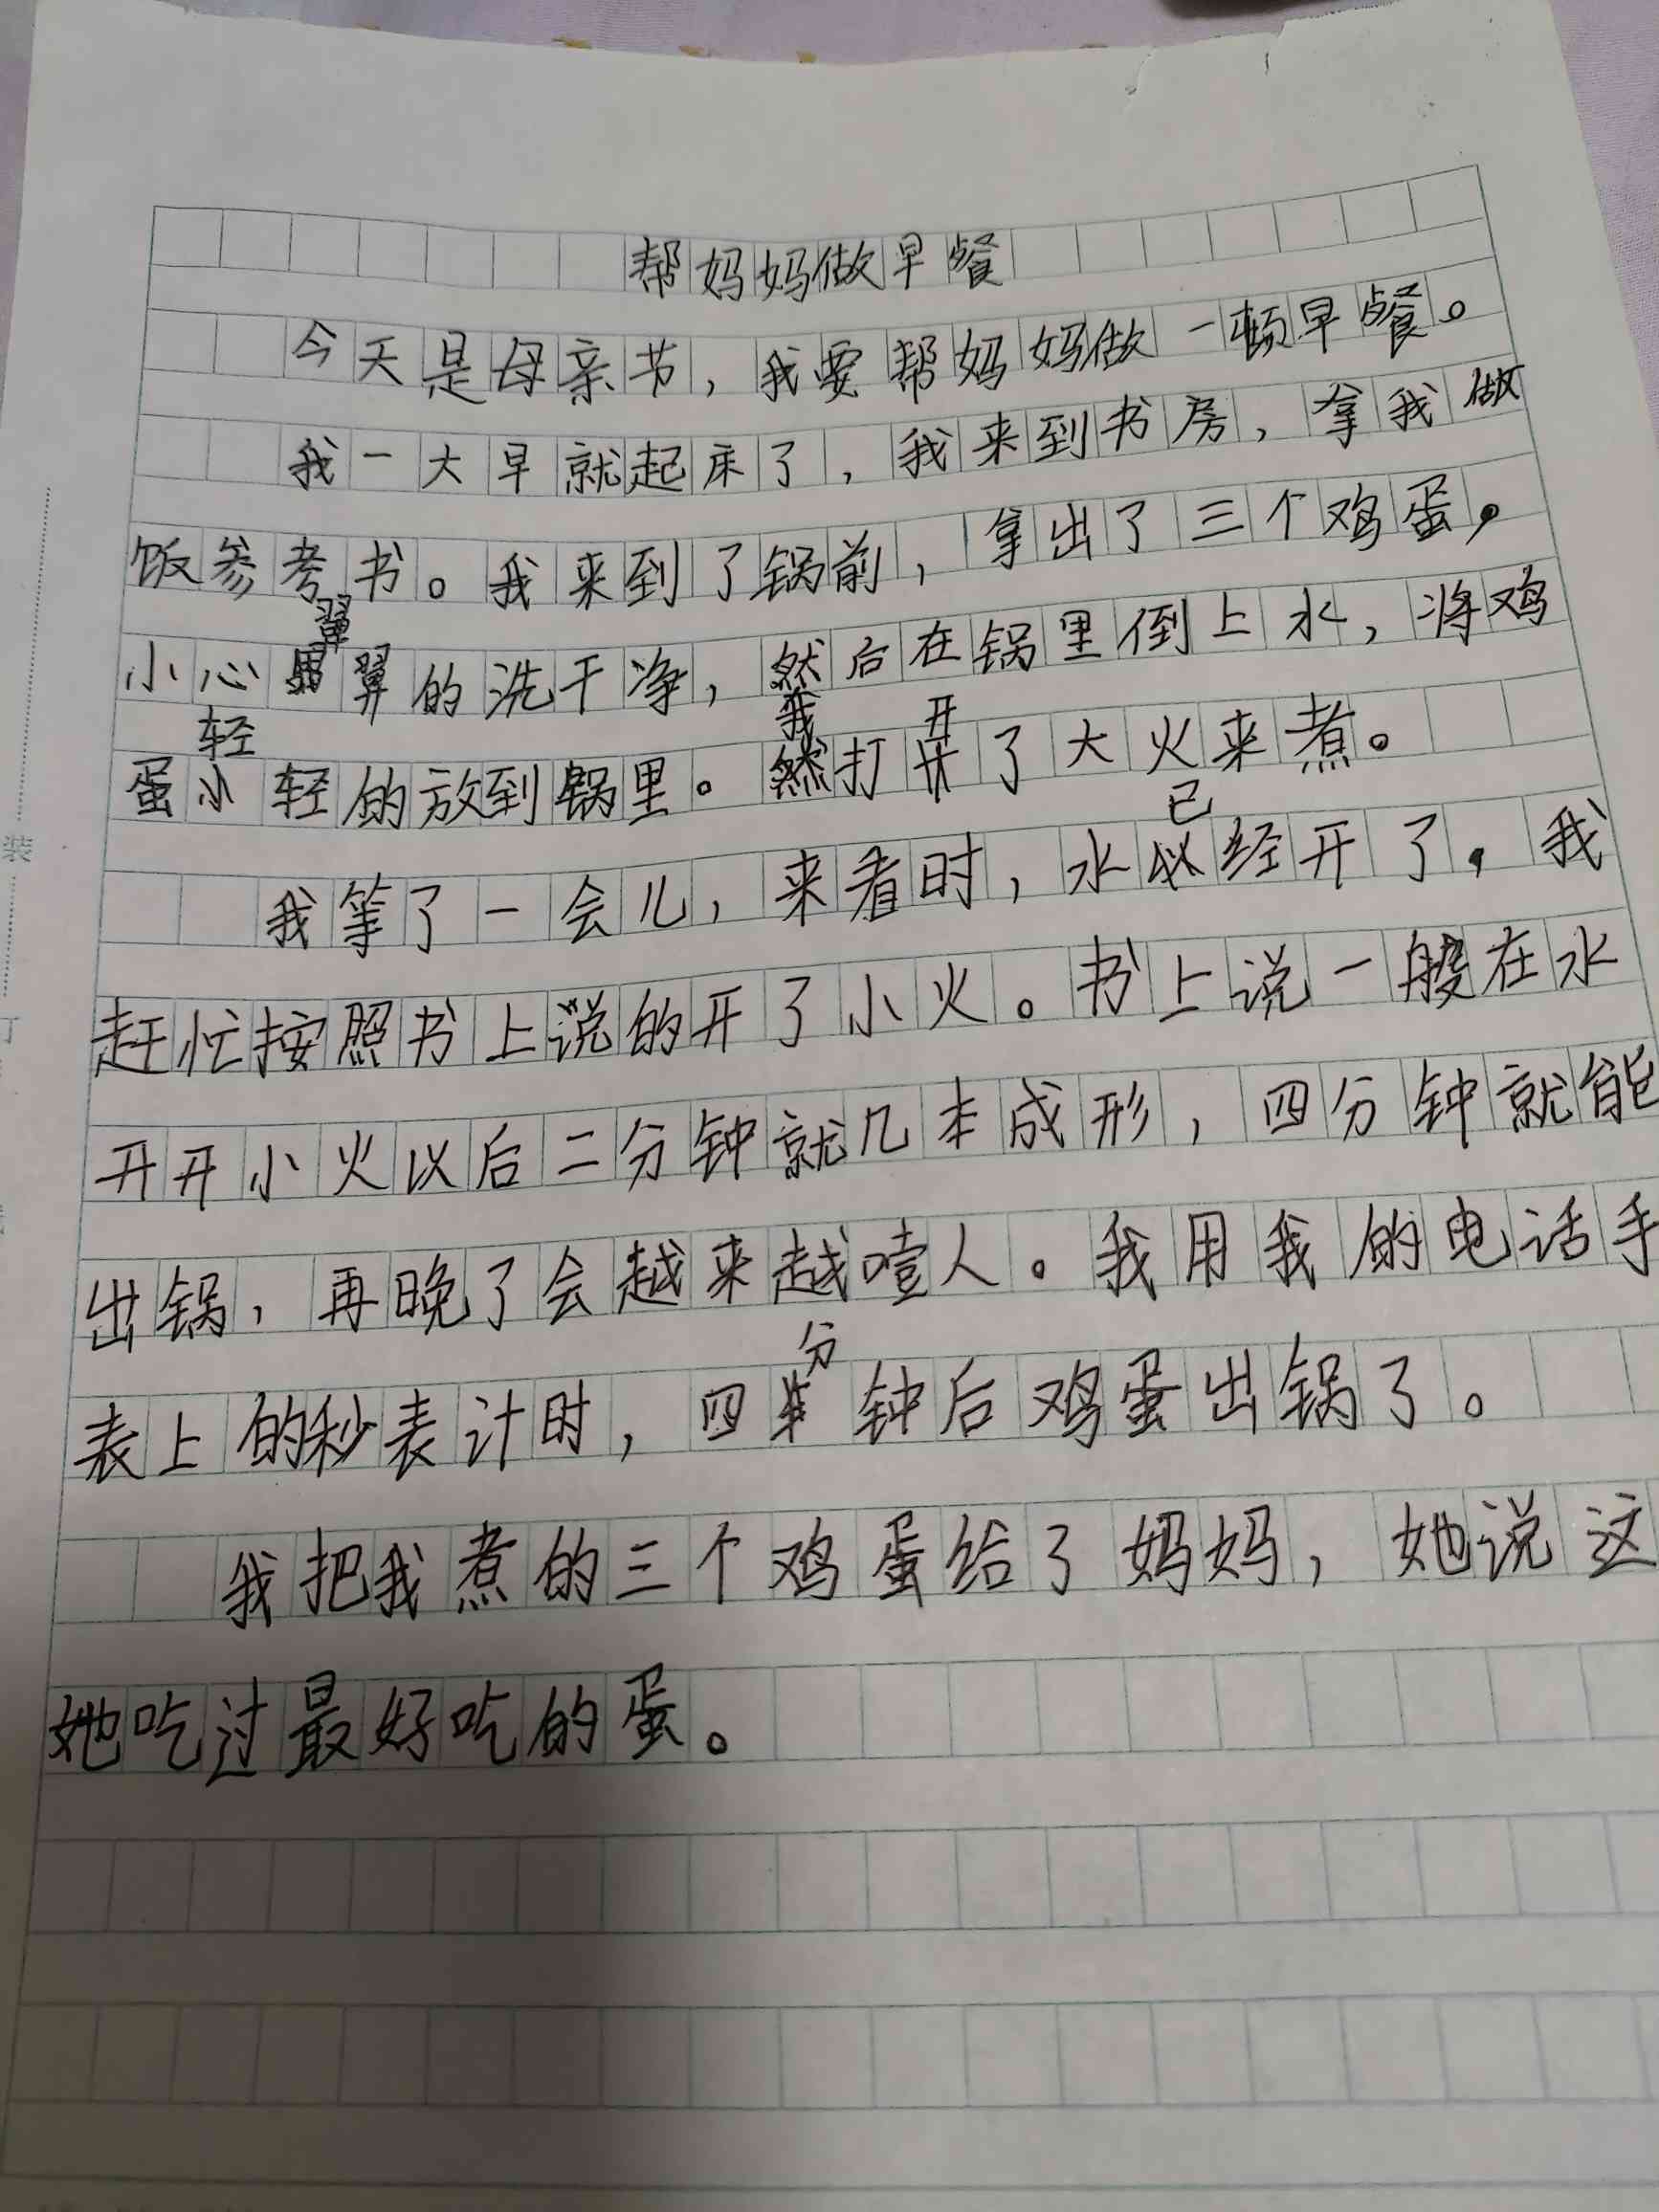 帮妈妈做早餐
今天是母亲节，我要帮妈妈做一顿早餐。
我一大早就起床了，我来到书房，拿我做
饭参考书。我来到了锅前，拿出了三个鸡蛋，
小心翼翼的洗干净，然后在锅里倒上水，将鸡
蛋轻轻的放到锅里。我打开了大火来煮。
我等了一会儿，来看时，水已经开了，我
赶忙按照书上说的开了小火。书上说一般在水
开开小火以后二分钟就几本成形，四分钟就能
出锅，再晚了会越来越噎人。我用我的电话手
表上的秒表计时，四分钟后鸡蛋出锅了。
我把我煮的三个鸡蛋给了妈妈，她说这
她吃过最好吃的蛋。